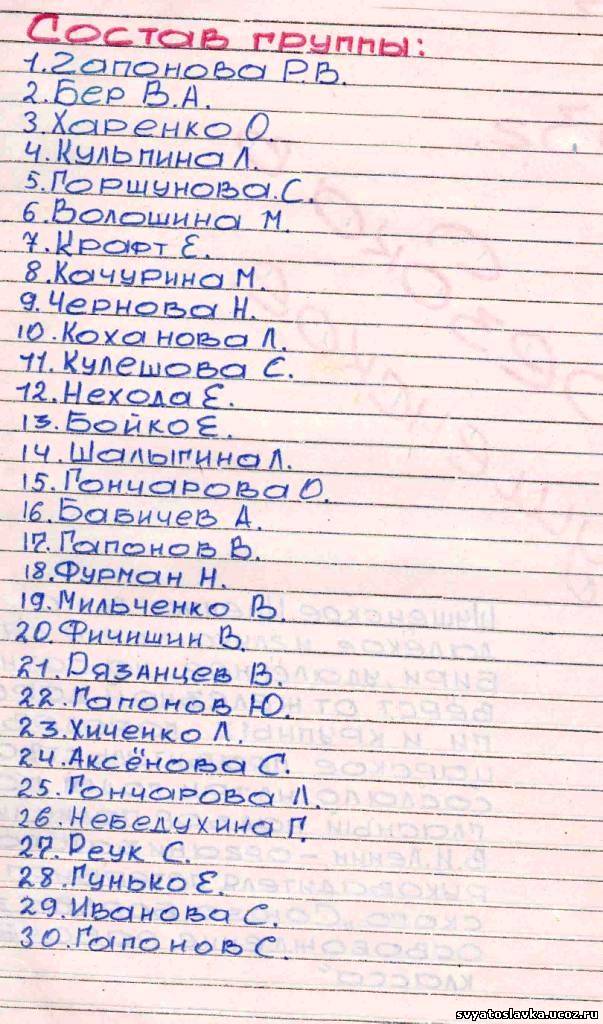 Состав группы:
1. Гапонова Р.В.
2. Бер В.А.
3. Харенко О.
4. Кульпина Л.
5. Горшунова С.
6. Волошина М.
7. Крафт Е.
8. Качурина М.
9. Чернова Н.
10. Коханова Л.
11. Кулешова Е.
12. Нехода Е.
13. Бойко Е.
14. Шалыгина Л.
15. Гончарова О.
16. Бабичев А.
17. Гапонов В.
18. Фурман Н.
19. Мильченко В.
20. Фичишин В.
21. Рязанцев В.
22. Гапонов Ю.
23. Хиченко Л.
24. Аксёнова С.
25. Гончарова Л.
26. Небедухина Г.
27. Реук С.
28. Гунько Е.
29. Иванова С.
30. Гапонов С.
svyatoslavka.ucoz.ru